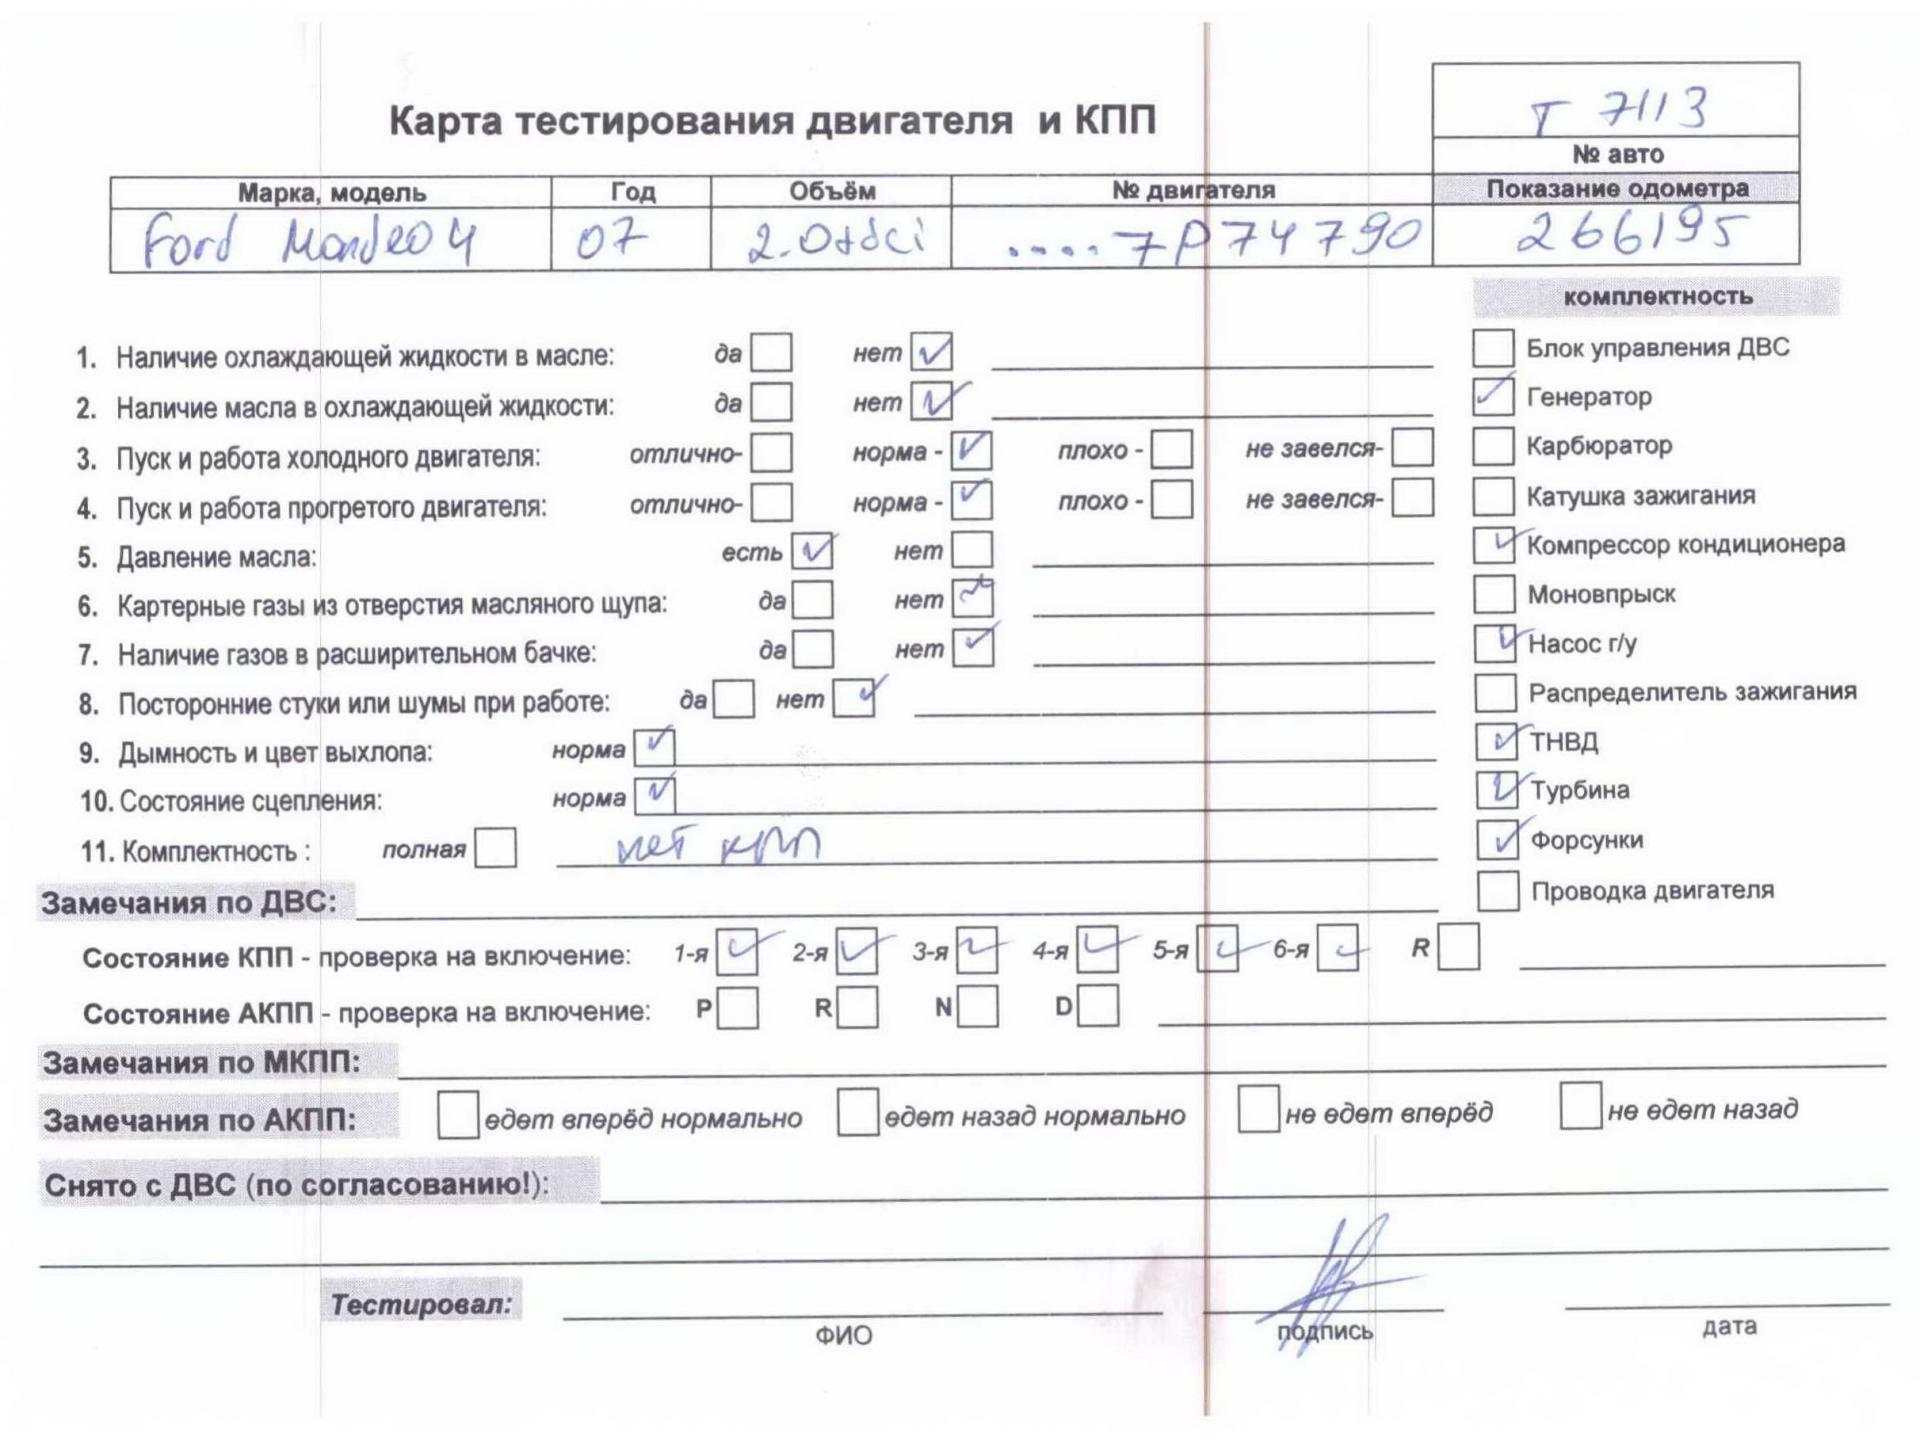 Карта тестирования двигателя и КПП
T 7113
№ авто
Марка, модель Год Объём № двигателя Показание одометра
Ford Mondeo 4 07 2.0tdci ....7P74790 266195
комплектность
1. Наличие охлаждающей жидкости в масле: да нет
2. Наличие масла в охлаждающей жидкости: да нет
3. Пуск и работа холодного двигателя: отлично- норма - плохо - не завелся-
4. Пуск и работа прогретого двигателя: отлично- норма - плохо - не завелся-
5. Давление масла: есть нет
6. Картерные газы из отверстия масляного щупа: да нет
7. Наличие газов в расширительном бачке: да нет
8. Посторонние стуки или шумы при работе: да нет
9. Дымность и цвет выхлопа: норма
10. Состояние сцепления: норма
11. Комплектность : полная нет кпп
Блок управления ДВС
Генератор
Карбюратор
Катушка зажигания
Компрессор кондиционера
Моновпрыск
Насос г/у
Распределитель зажигания
ТНВД
Турбина
Форсунки
Проводка двигателя
Замечания по ДВС:
Состояние КПП - проверка на включение: 1-я 2-я 3-я 4-я 5-я 6-я R
Состояние АКПП - проверка на включение: P R N D
Замечания по МКПП:
Замечания по АКПП: едет вперёд нормально едет назад нормально не едет вперёд не едет назад
Снято с ДВС (по согласованию!):
Тестировал:
ФИО подпись дата